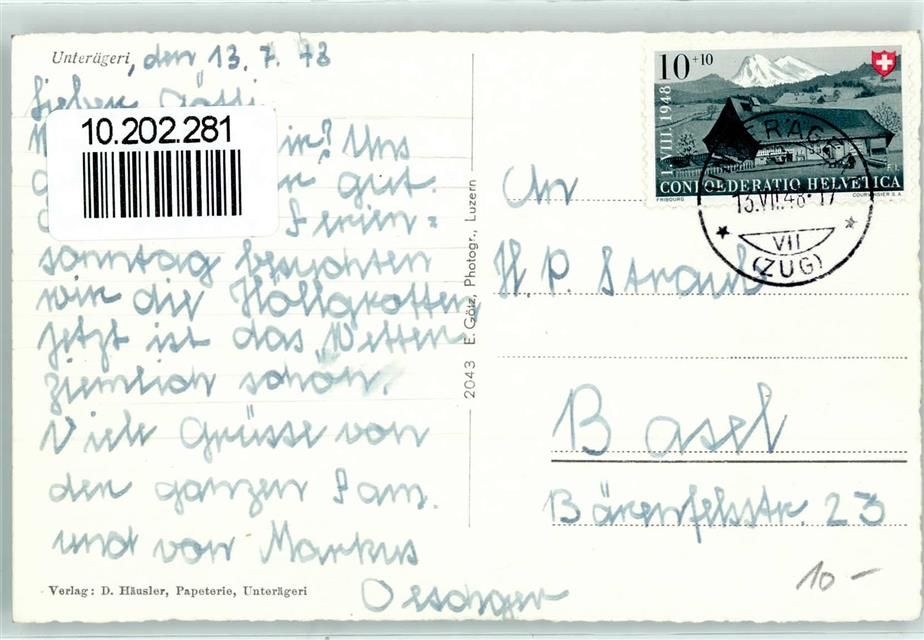 Unterägeri, den 13. 7. 48
Lieber Götti
10.202.281
in? Uns
gut.
Ferien=
sonntag besuchten
wir die Höllgrotten
Jetzt ist das Wetter
ziemlich schön.
Viele Grüsse von
der ganzen Fam.
und von Markus
Oeschger
Verlag: D. Häusler, Papeterie, Unterägeri
2043 E. Götz, Photogr., Luzern
10+10
1.VIII.1948
CONFOEDERATIO HELVETICA
FRIBOURG COURVOISIER S.A.
13.VII.48-17
VII
(ZUG)
An
H. P. Straub
Basel
Bärenfelsstr. 23
10 –